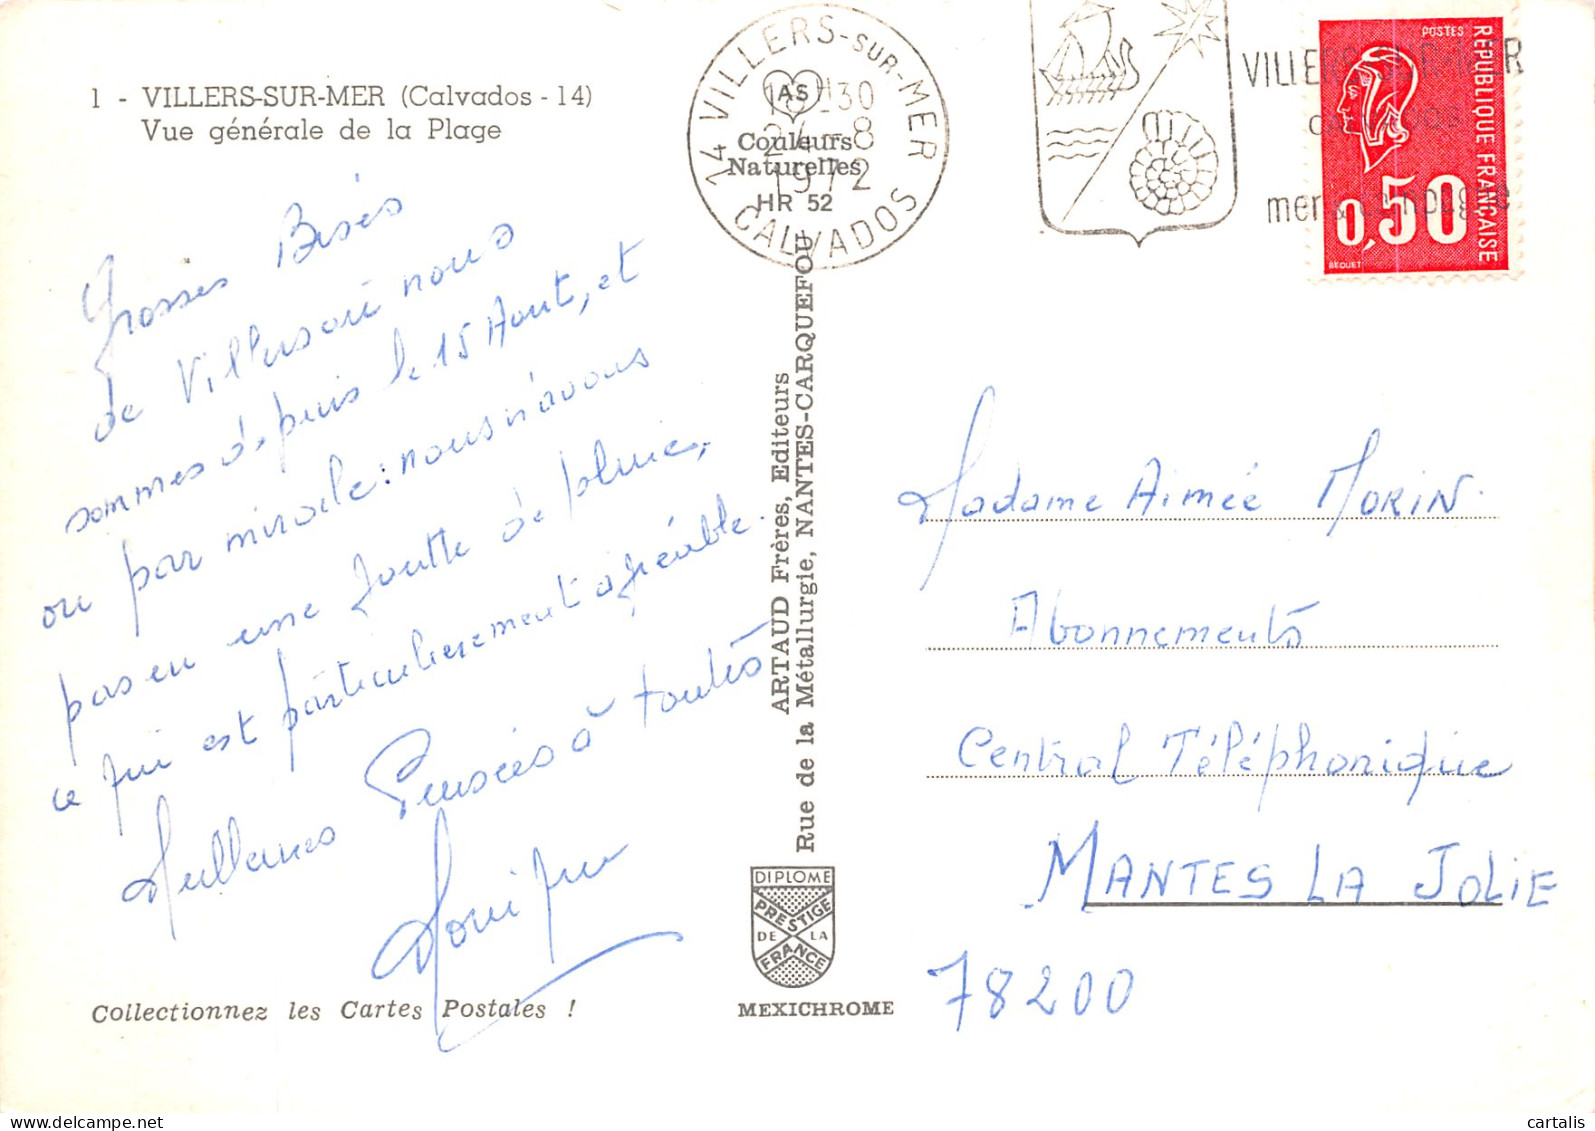 1 - VILLERS-SUR-MER (Calvados - 14)
Vue générale de la Plage
Grosses Bises
de Villers où nous
sommes depuis le 15 Aout, et
ou par miracle : nous n'avons
pas eu une goutte de pluie,
ce qui est particulièrement agréable.
Meilleures Pensées à toutes
Collectionnez les Cartes Postales !
14 VILLERS-SUR-MER
CALVADOS
H30
24-8
1972
AS
Couleurs
Naturelles
HR 52
ARTAUD Frères, Editeurs
Rue de la Métallurgie, NANTES-CARQUEFOU
DIPLOME
PRESTIGE
DE LA
FRANCE
MEXICHROME
VILLERS SUR MER
calvados
mer & campagne
POSTES
REPUBLIQUE FRANÇAISE
0,50
BEQUET
Madame Aimée MORIN.
Abonnements
Central Téléphonique
MANTES LA JOLIE
78200
cartalis
www.delcampe.net